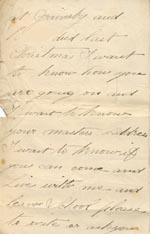 at Grimsby and
did last
Christmas I want
to know how you
are going on and
I want to know
your masters address
I want to know if
you can come and
Live with me and
please
to write or ask your